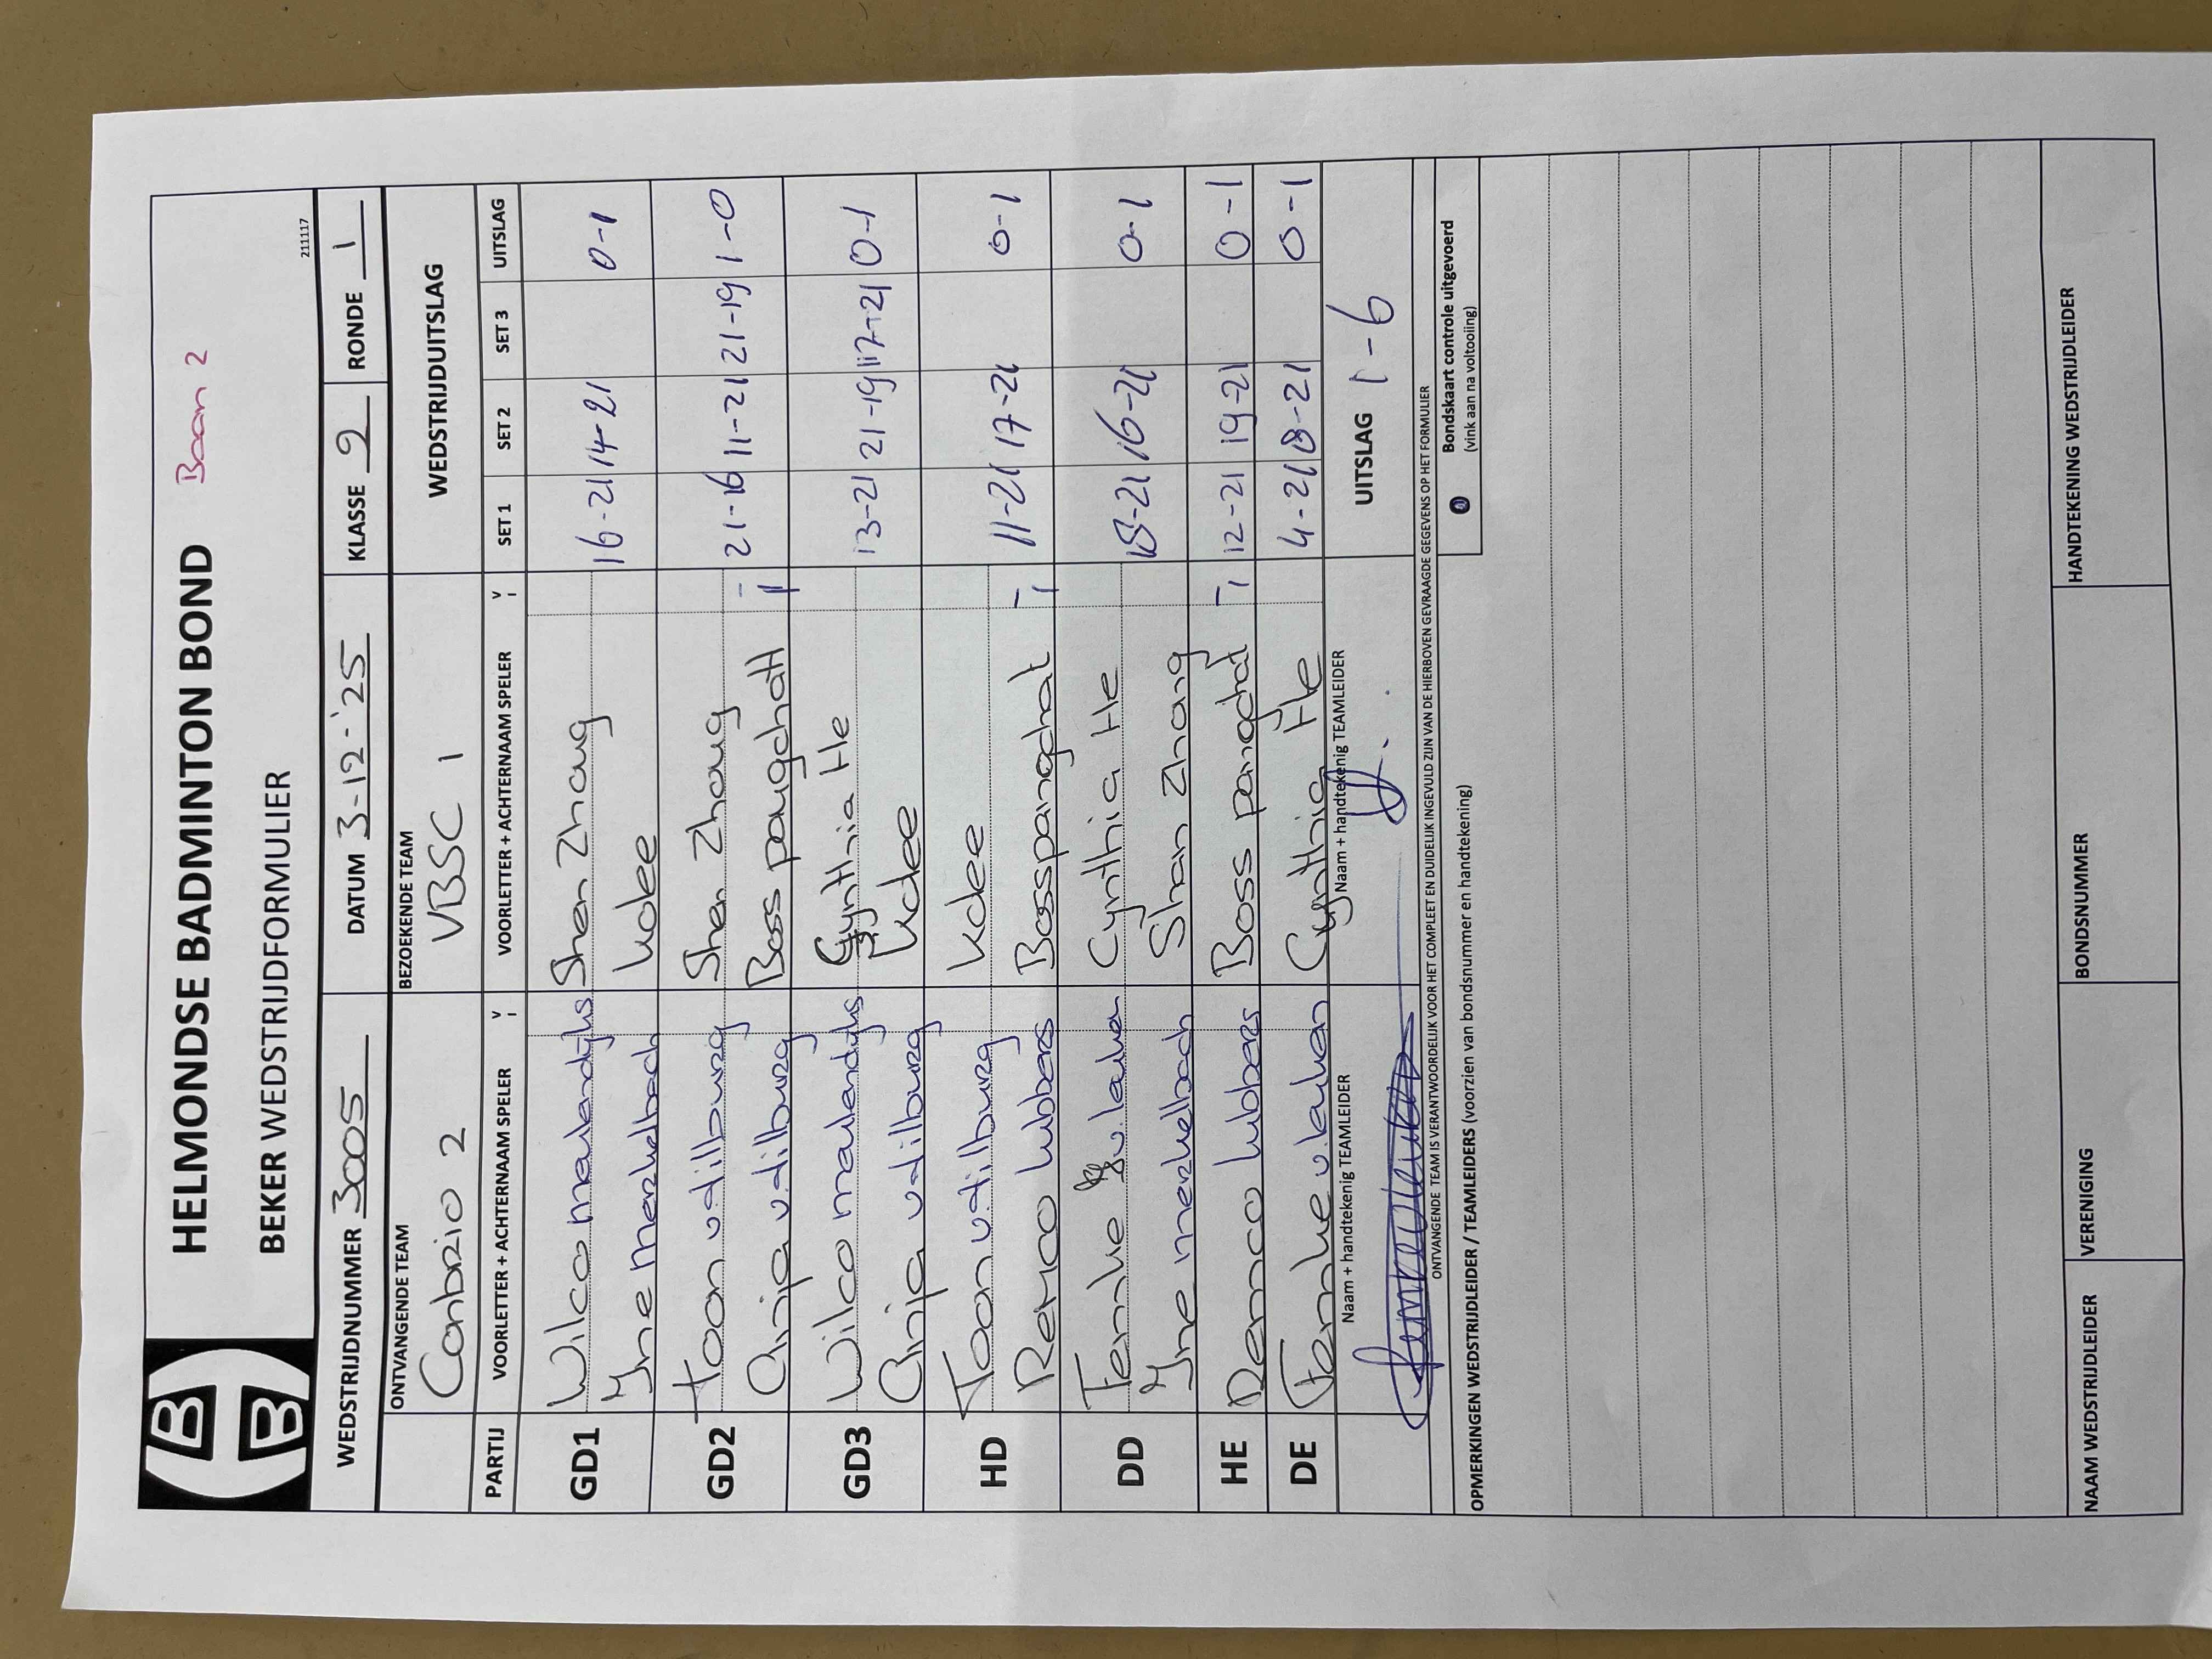 HELMONDSE BADMINTON BOND Baan 2
BEKER WEDSTRIJDFORMULIER
211117
WEDSTRIJDNUMMER 3005 DATUM 3-12-'25 KLASSE 9 RONDE 1
ONTVANGENDE TEAM BEZOEKENDE TEAM WEDSTRIJDUITSLAG
Conbrio 2 VBSC 1
PARTIJ VOORLETTER + ACHTERNAAM SPELER V I VOORLETTER + ACHTERNAAM SPELER V I SET 1 SET 2 SET 3 UITSLAG
GD1 Wilco Shan Zhang 16-21 14-21 0-1
Yne Merkelbach kdee
GD2 Toon v.tilburg Shan Zhang 21-16 11-21 21-19 1-0
Anja v.tilburg Boss pangchatt
GD3 Wilco Cynthia He 13-21 21-19 17-21 0-1
Anja v.tilburg kdee
HD Toon v.tilburg kdee 11-21 17-21 0-1
Remco lubbers Boss pangchat I
DD Femke v.laken Cynthia He 18-21 16-21 0-1
Yne merkelbach Shan Zhang
HE Remco lubbers Boss pangchat I 12-21 19-21 0-1
DE Femke v.laken Cynthia He 4-21 18-21 0-1
Naam + handtekenig TEAMLEIDER Naam + handtekenig TEAMLEIDER UITSLAG 1-6
ONTVANGENDE TEAM IS VERANTWOORDELIJK VOOR HET COMPLEET EN DUIDELIJK INGEVULD ZIJN VAN DE HIERBOVEN GEVRAAGDE GEGEVENS OP HET FORMULIER
Bondskaart controle uitgevoerd
(vink aan na voltooiing)
OPMERKINGEN WEDSTRIJDLEIDER / TEAMLEIDERS (voorzien van bondsnummer en handtekening)
NAAM WEDSTRIJDLEIDER VERENIGING BONDSNUMMER HANDTEKENING WEDSTRIJDLEIDER